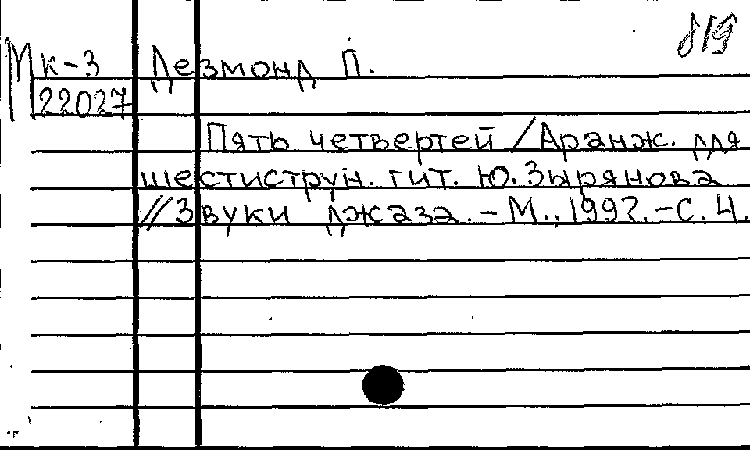 819
Мк-3 Дезмонд П.
22027
Пять четвертей / Аранж. для
шестиструн. гит. Ю. Зырянова
// Звуки джаза. - М., 1992. - С. 4.